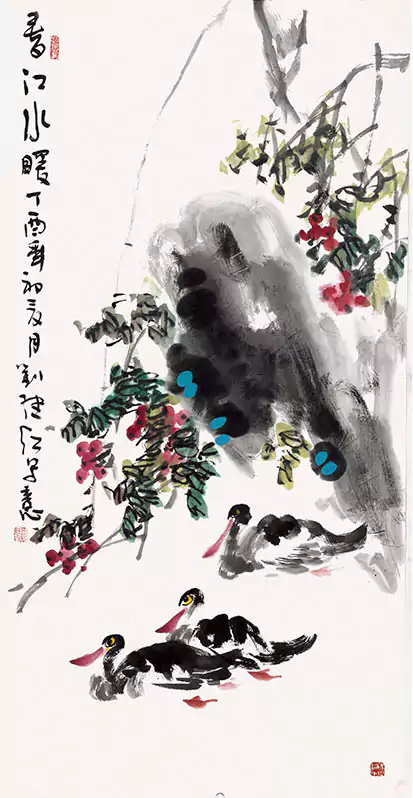 春江水暖丁酉年初夏月劉健红写意